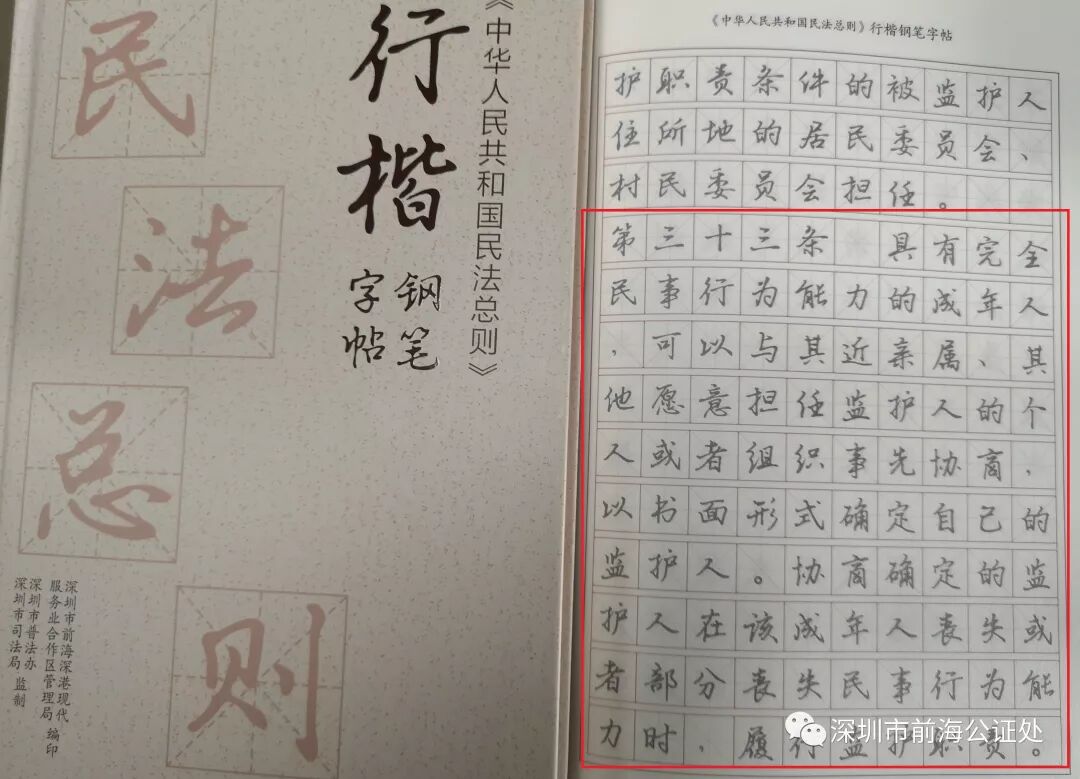 民
法
总
则
行楷
钢笔
字帖
《中华人民共和国民法总则》
深圳市前海深港现代
服务业合作区管理局 编印
深圳市普法办
深圳市司法局 监制
《中华人民共和国民法总则》行楷钢笔字帖
护职责条件的被监护人
住所地的居民委员会、
村民委员会担任。
第三十三条 具有完全
民事行为能力的成年人
，可以与其近亲属、其
他愿意担任监护人的个
人或者组织事先协商，
以书面形式确定自己的
监护人。协商确定的监
护人在该成年人丧失或
者部分丧失民事行为能
力时，履行监护职责。
深圳市前海公证处